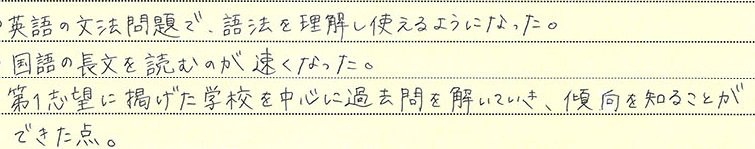 ・英語の文法問題で、語法を理解し使えるようになった。
・国語の長文を読むのが速くなった。
第1志望に掲げた学校を中心に過去問を解いていき、傾向を知ることが
できた点。